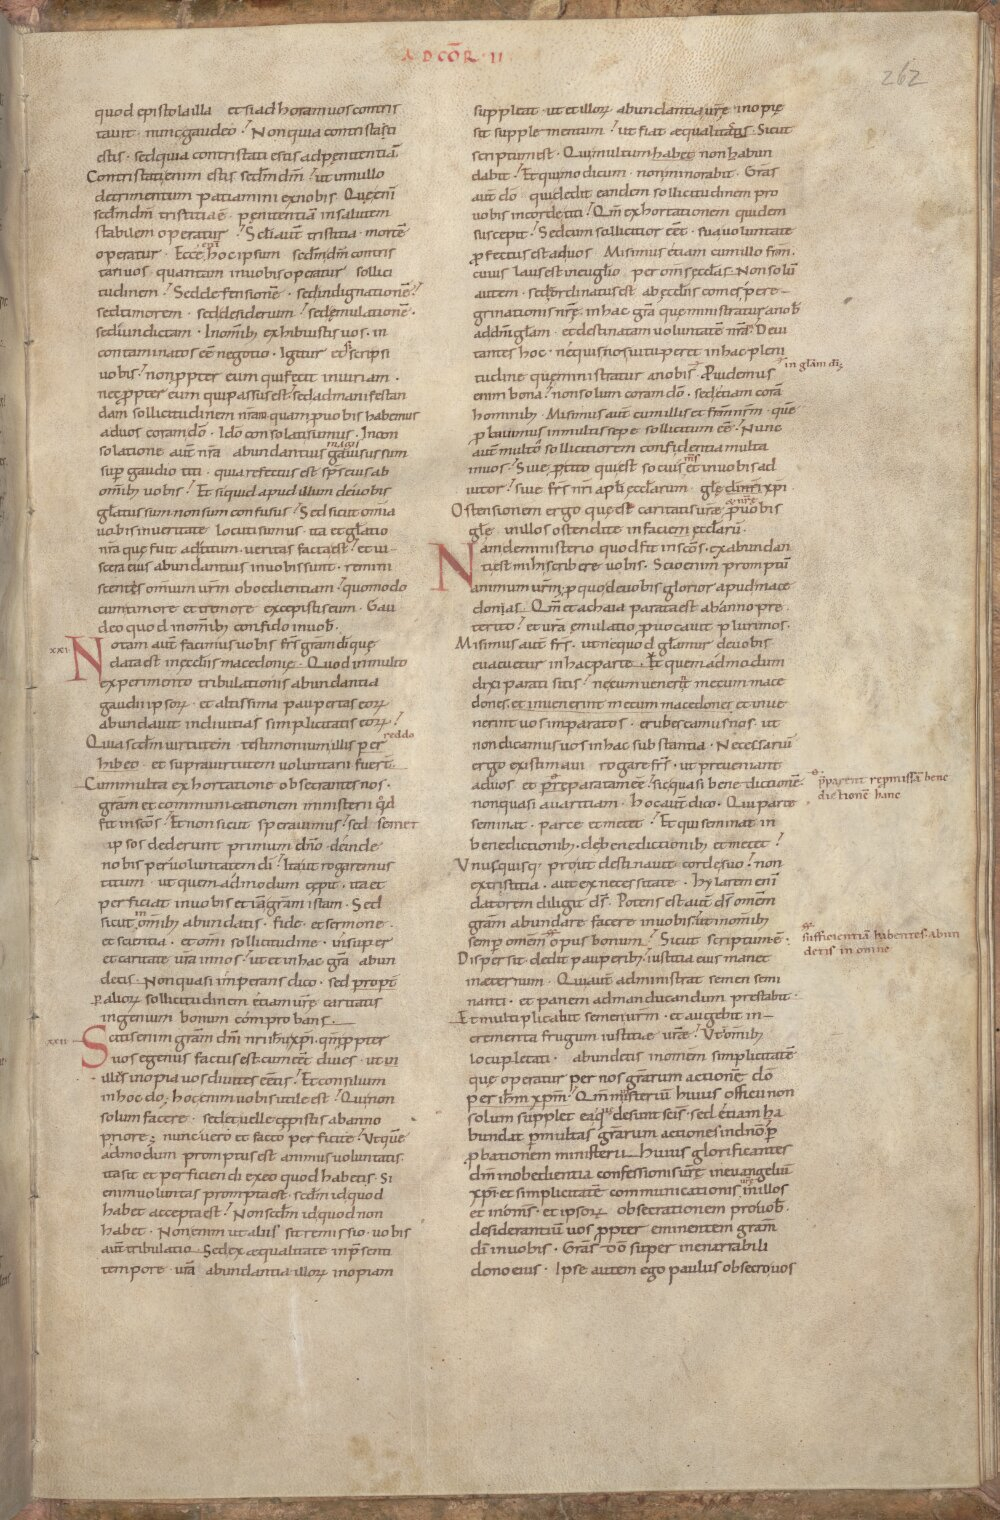 AD COR̄ · II
262
quod epistola illa et si ad horam uos contris
tauit · nunc gaudeo · Non quia contristati
estis · sed quia contristati estis ad penitentiā
Contristati enim estis scdm dm̄ · ut in nullo
detrimentum patiamini ex nobis · Que enī
scdm dm̄ tristitia ē · penitentiā in salutem
stabilem operatur · Scli aut̄ tristitia · mortē
operatur · Ecce enī hoc ipsum scdm dm̄ contris
tari uos · quantam in uobis operatur sollici
tudinem · Sed defensionē · sed indignationē ·
sed timorem · sed desiderium · sed emulationē ·
sed uindictam · In omib; exhibuistis uos · in
contaminatos eē negotio · Igitur etsi scripsi
uobis · non ppter eum qui fecit iniuriam ·
nec ppter eum qui passus est · sed ad manifestan
dam sollicitudinem nram quam p uobis habemus
ad uos coram dō · Ido consolati sumus · In con
solatione aut̄ nra abundantius magis gauisi sum
sup gaudio titi · quia refectus est sps eius ab
omib; uobis · Et si quid apud illum de uobis
glatus sum non sum confusus · Sed sicut omia
uobis in ueritate locuti sumus · ita et glatio
nra que fuit ad titum ueritas facta est · et ui
scera eius abundantius in uobis sunt · remini
scentes omium urm oboedientiam · quomodo
cum timore et tremore excepistis eum · Gau
deo quod in omib; confido in uob ·
xxi · Notam aut̄ facimus uobis frs gram di que
data est in ecclis macedonie · Quod in multo
experimento tribulationis abundantia
gaudii ipsorꝝ · et altissima paupertas eorꝝ
abundauit in diuitias simplicitatis eorꝝ ·
Quia scdm uirtutem testimonium illis per reddo
hibeo · et supra uirtutem uoluntarii fuert ·
Cum multa exhortatione obsecrantes nos ·
gram et communicationem ministerii qd
fit in scos · Et non sicut sperauimus · sed semet
ipsos dederunt primum dno · deinde
nobis per uoluntatem di · Ita ut rogaremus
titum · ut quemadmodum cepit · ita et
perficiat in uobis etiā gram istam · Sed
sicut in omib; abundatis · fide · et sermone ·
et scientia · et omi sollicitudine · insuper
et caritate ura in nos · ut et in hac gra abun
detis · Non quasi imperans dico · sed propt
aliorꝝ sollicitudinem etiam ure caritatis
ingenium bonum comprobans ·
xxii · Scitis enim gram dni nri ihu xpi · qm ppter
uos egenus factus est · cum eēt diues · ut in
illis inopia uos diuites eētis · Et consilium
in hoc do · hoc enim uobis utile est · Qui non
solum facere · sed et uelle cepistis ab anno
priore · nunc uero et facto perficite · Ut quē
admodum promptus est animus uoluntatis ·
ita sit et perficiendi ex eo quod habetis · Si
enim uoluntas prompta est · scdm id quod
habet accepta est · Non scdm id quod non
habet · Non enim ut aliis sit remissio · uobis
aut̄ tribulatio · Sed ex æqualitate in psenti
tempore ura abundantia illorꝝ inopiam
suppleat · ut et illorꝝ abundantia ure inopie
sit supplementum · ut fiat æqualitas · Sicut
scriptum est · Qui multum habet non habun
dabit · Et qui modicum · non minorabit · Gras
aut̄ dō qui dedit eandem sollicitudinem pro
uobis in corde titi · Qm exhortationem quidem
suscepit · Sed cum sollicitior eēt · sua uoluntate
pfectus est ad uos · Misimus etiam cum illo frm ·
cuius laus est in euglio per oms ecclas · Non solū
autem · sed ordinatus est ab ecclis comes pere
grinationis nre · in hac gra que ministratur a nob
ad dni glam · et destinatam uoluntatē nrā · Deui
tantes hoc · ne quis nos uituperet in hac pleni
tudine que ministratur a nobis · Puidemus in glam dni;
enim bona · non solum coram dō · sed etiam corā
hominib; · Misimus aut̄ cum illis et frm nrm · quē
pbauimus in multis sepe sollicitum eē · Nunc
aut̄ multo sollicitiorem confidentia multa
in uos · Siue p tito qui est socius ms et in uobis ad
iutor · siue frs nri apli ecclarum gle xpi ·
Ostensionem ergo que est caritatis ure p uobis
gle in illos ostendite in faciem ecclarū ·
Nam de ministerio quod fit in scos · ex abundan
ti est mihi scribere uobis · Scio enim promptū
animum urm · p quo de uobis glorior apud mace
donias · Qm et achaia parata est ab anno pre
terito · et ura emulatio puocauit plurimos ·
Misimus aut̄ frs · ut ne quod glamur de uobis
euacuetur in hac parte · Ut quemadmodum
dixi parati sitis · ne cum uenerit mecum mace
dones et inuenerint mecum macedones et inue
nerint uos imparatos · erubescamus nos · ut
non dicamus uos in hac substantia · Necessariū
ergo existimaui rogare frs · ut preueniant
ad uos et preparatam eē · sic quasi benedictionē · pparent repmissā bene
dictionē hanc
non quasi auaritiam · hoc aut̄ dico · Qui parce
seminat · parce et metet · Et qui seminat in
benedictionib; · de benedictionib; et metet ·
Unusquisq; prout destinauit corde suo · non
ex tristitia · aut ex necessitate · hylarem enī
datorem diligit ds · Potens est aut̄ ds omem
gram abundare facere in uobis · ut in omib;
semp omem opus bonum · Sicut scriptum ē · sufficientiā habentes · abun
detis in omne
Dispersit · dedit pauperib; · iustitia eius manet
in æternum · Qui aut̄ administrat semen semi
nanti · et panem ad manducandum prestabit
Et multiplicabit semen urm · et augebit in
crementa frugum iustitiæ uræ · Ut omib;
locupletati · abundetis in omem simplicitatē
que operatur per nos grarum actionē dō
per ihm xpm · Qm misterium huius officii non
solum supplet ea que desunt scis · sed etiam ha
bundat p multas grarum actiones in dno p
pbationem ministerii · Huius glorificantes
dm in obedientia confessionis ure in euangeliū
xpi et simplicitate communicationis ure in illos
et in oms · et ipsorꝝ obsecrationem pro uob ·
desiderantiū uos ppter eminentem gram
di in uobis · Gras dō super inenarrabili
dono eius · Ipse autem ego paulus obsecro uos